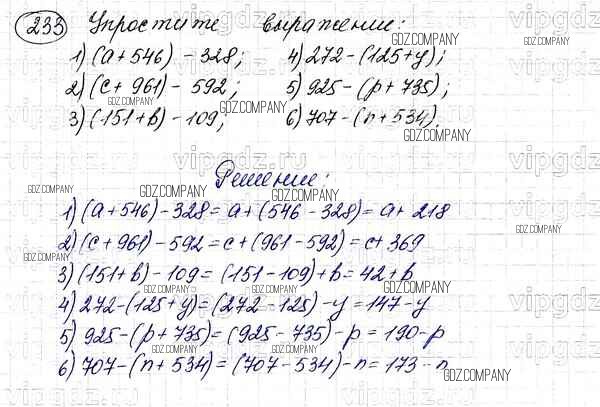 233 Упростите выражение:
1) (a+546) - 328; 4) 272-(125+y);
2) (c+961) - 592; 5) 925-(p+735);
3) (151+b) - 109; 6) 707-(n+534).
Решение:
1) (a+546)-328= a+(546-328)= a+218
2) (c+961)-592= c+(961-592)= c+369
3) (151+b)-109= (151-109)+b= 42+b
4) 272-(125+y)=(272-125)-y=147-y
5) 925-(p+735)=(925-735)-p=190-p
6) 707-(n+534)=(707-534)-n=173-n